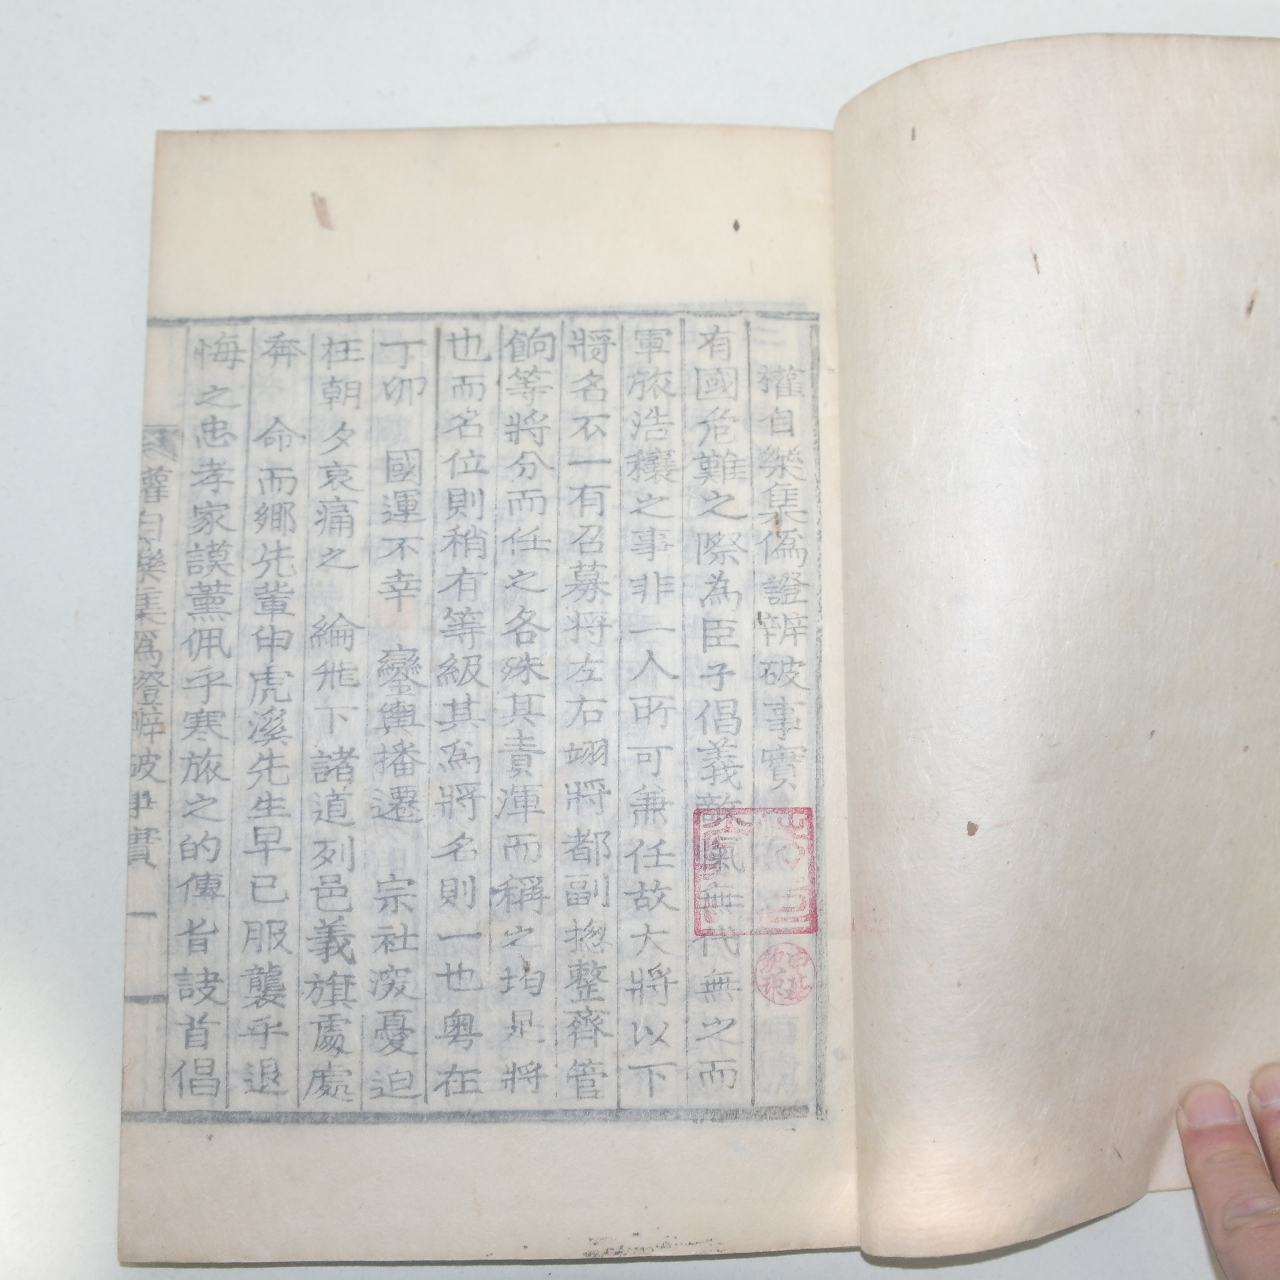 權自樂集僞證辨破事實
有國危難之際為臣子倡義敵愾無代無之而
軍旅浩穰之事非一人所可兼任故大將以下
將名不一有召募將左右翊將都副摠整齊管
餉等將分而任之各殊其責渾而稱之均是將
也而名位則稍有等級其爲將名則一也粤在
丁卯 國運不幸 鑾輿播遷 宗社深憂迫
在朝夕哀痛之 綸飛下諸道列邑義旗處處
奔 命而鄕先輩申虎溪先生早已服襲乎退
悔之忠孝家謨薰佩乎寒旅之的傳旨訣首倡
權自樂集爲證辨破事實 一